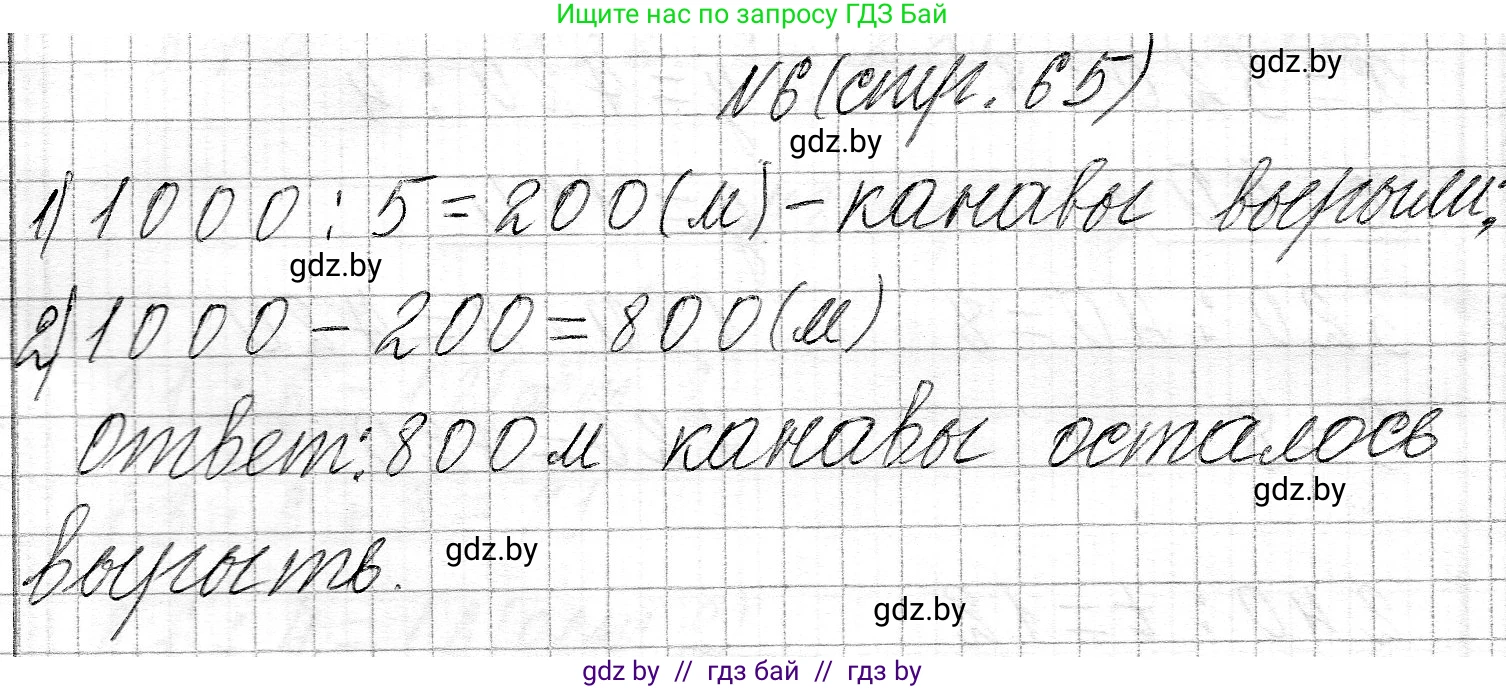 Ищите нас по запросу ГДЗ Бай
N6 (стр. 65)
gdz.by
gdz.by
1) 1000 : 5 = 200 (м) - канавы вырыли;
gdz.by
2) 1000 - 200 = 800 (м)
Ответ: 800 м канавы осталось
gdz.by
вырыть.
gdz.by
gdz.by
gdz by // гдз бай // гдз by